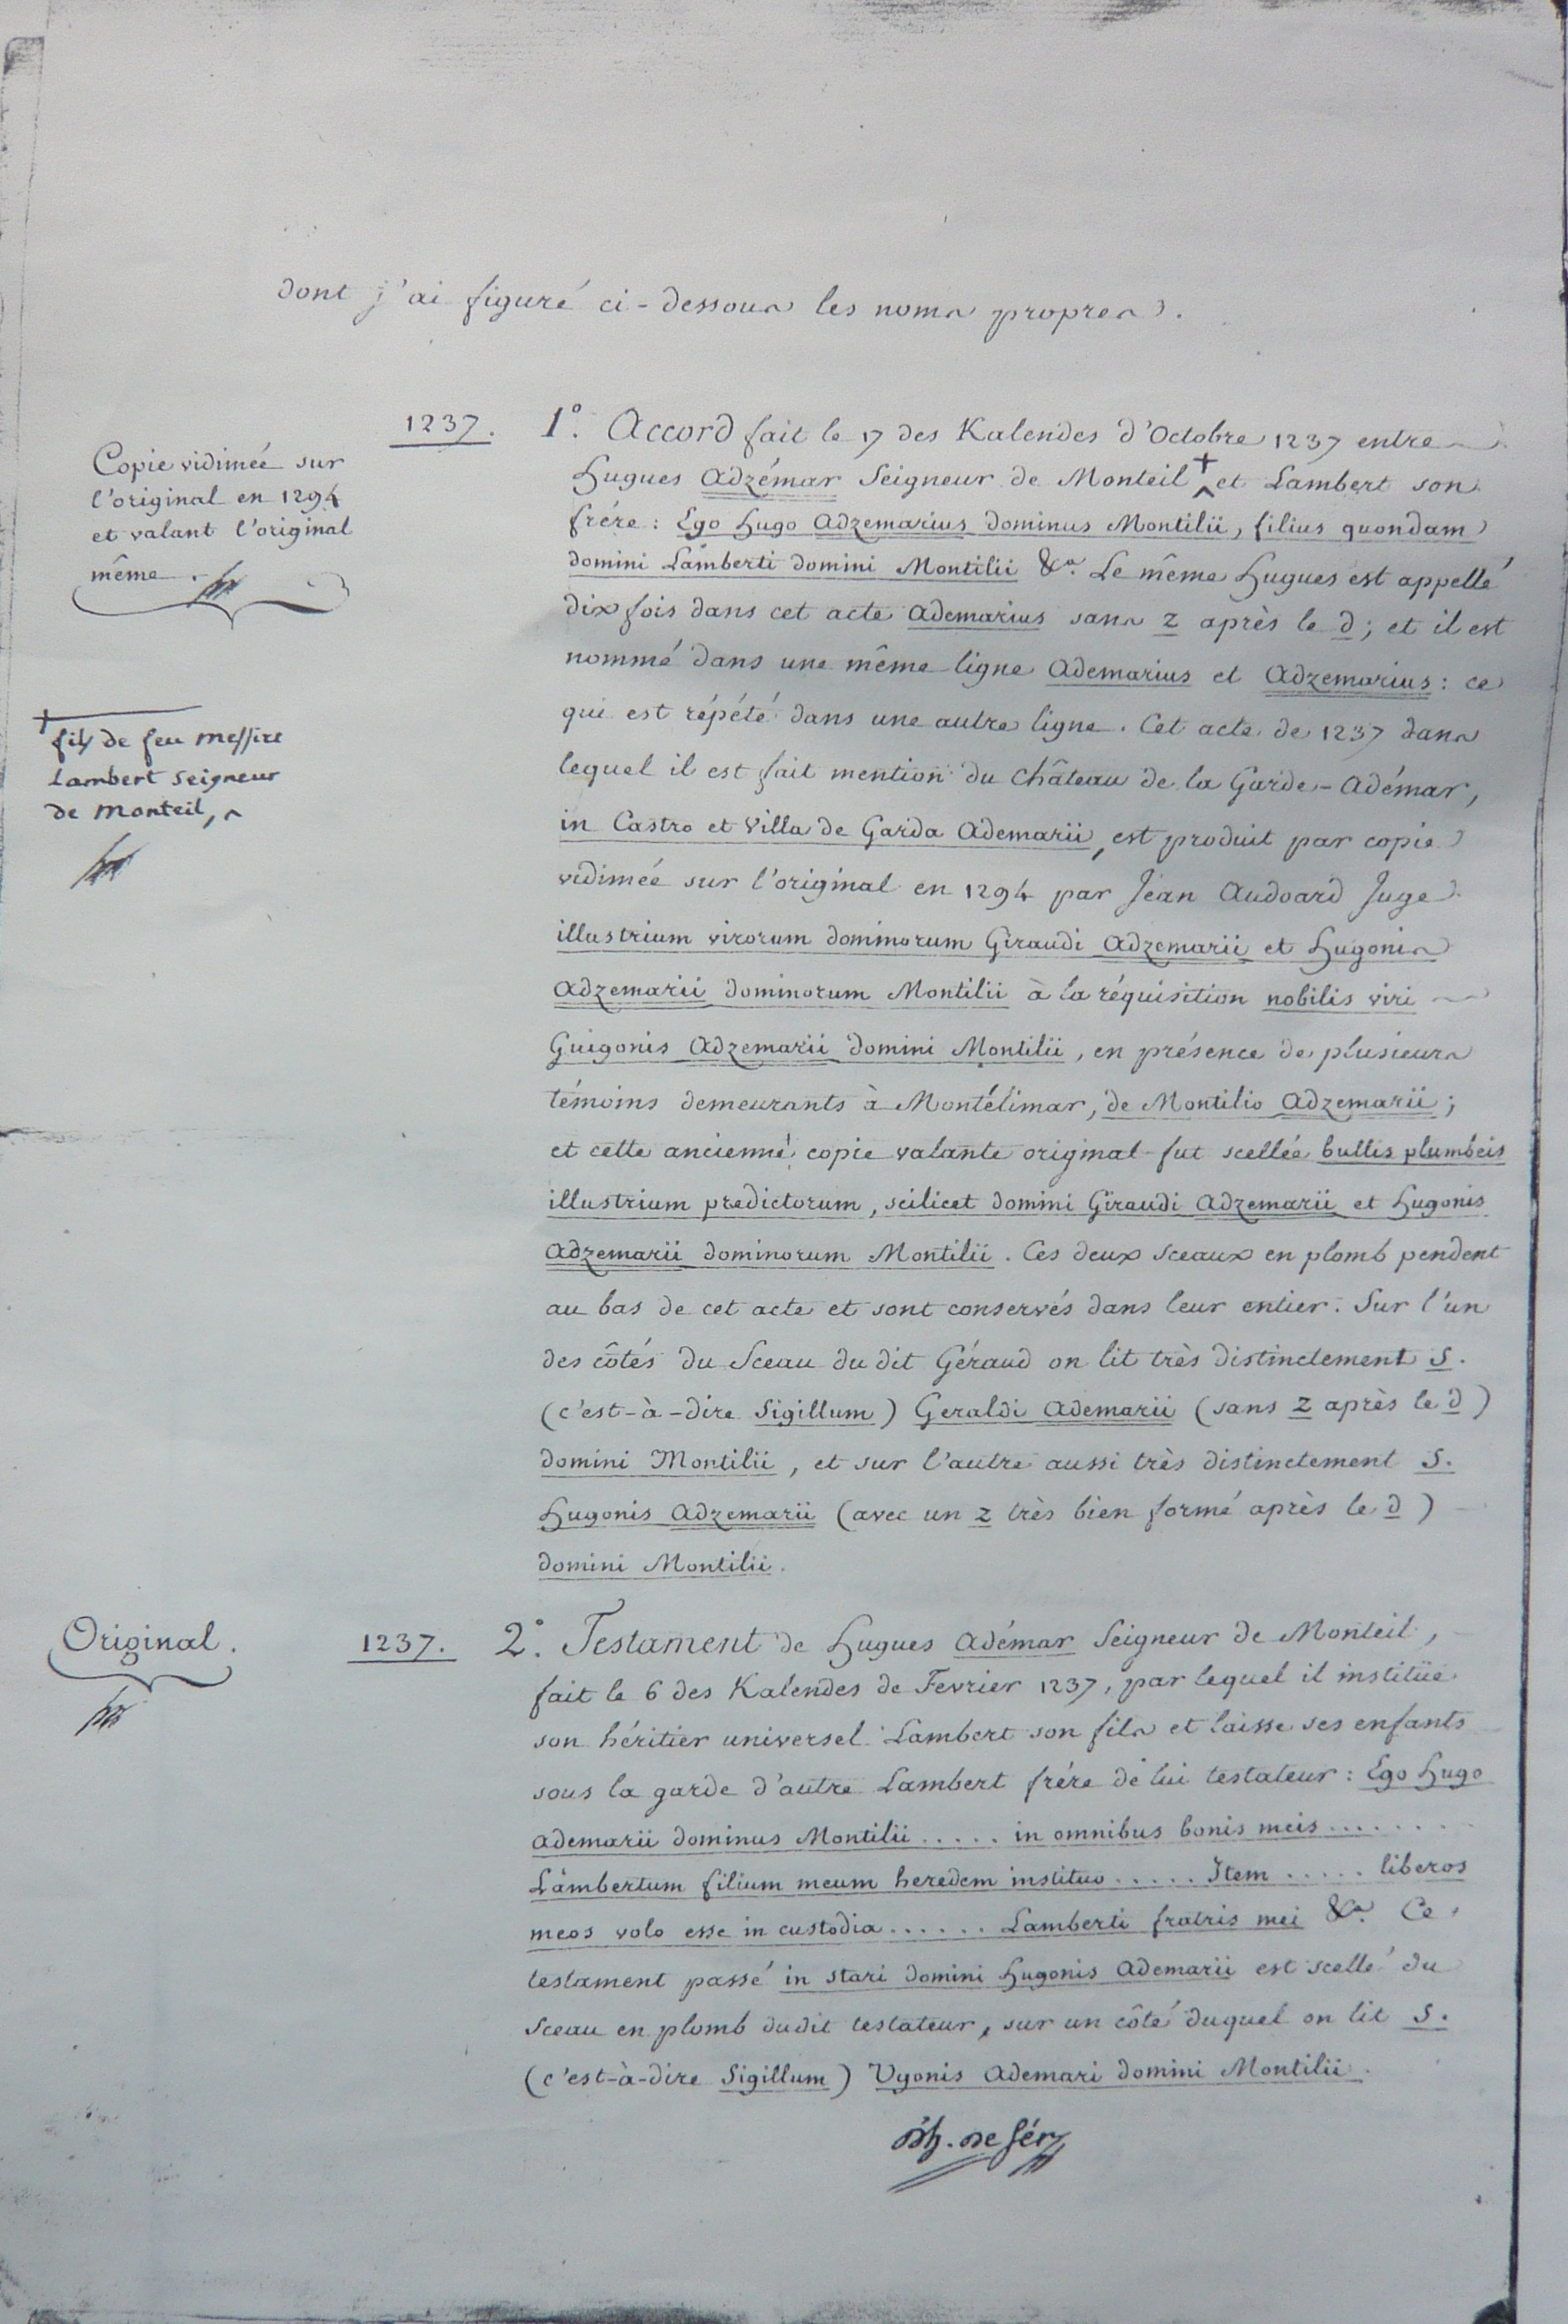 dont j'ai figuré ci-dessous les noms propres.
1237.
1.° Accord fait le 17 des Kalendes d'Octobre 1237 entre
Hugues Adzémar Seigneur de Monteil + et Lambert son
frére : Ego Hugo Adzemarius dominus Montilii, filius quondam
domini Lamberti domini Montilii &a. Le même Hugues est appellé
dix fois dans cet acte Ademarius sans z après le d ; et il est
nommé dans une même ligne Ademarius et Adzemarius : ce
qui est répété dans une autre ligne. Cet acte de 1237 dans
lequel il est fait mention du Château de la Garde-Adémar,
in Castro et Villa de Garda Ademarii, est produit par copie
vidimée sur l'original en 1294 par Jean Audoard Juge
illustrium virorum dominorum Giraudi Adzemarii et Hugonis
Adzemarii dominorum Montilii à la réquisition nobilis viri
Guigonis Adzemarii domini Montilii, en présence de plusieurs
témoins demeurants à Montélimar, de Montilio Adzemarii ;
et cette ancienne copie valante original fut scellée bullis plumbeis
illustrium predictorum, scilicet domini Giraudi Adzemarii et Hugonis
Adzemarii dominorum Montilii. Ces deux Sceaux en plomb pendent
au bas de cet acte et sont conservés dans leur entier. Sur l'un
des côtés du Sceau du dit Géraud on lit très distinctement S.
(c'est-à-dire Sigillum) Geraldi Ademarii (sans z après le d)
domini Montilii, et sur l'autre aussi très distinctement S.
Hugonis Adzemarii (avec un z très bien formé après le d)
domini Montilii.
Copie vidimée sur
l'original en 1294
et valant l'original
même.
+ fils de feu messire
Lambert Seigneur
de Monteil,
Original.
1237.
2.° Testament de Hugues Adémar Seigneur de Monteil,
fait le 6 des Kalendes de Fevrier 1237, par lequel il institüe
son héritier universel Lambert son fils et laisse ses enfants
sous la garde d'autre Lambert frére de lui testateur : Ego Hugo
Ademarii dominus Montilii ..... in omnibus bonis meis ........
Lambertum filium meum heredem instituo ..... Item ..... liberos
meos volo esse in custodia ...... Lamberti fratris mei &a. Ce
testament passé in stari domini Hugonis Ademarii est scellé du
Sceau en plomb dudit testateur, sur un côté duquel on lit S.
(c'est-à-dire Sigillum) Vgonis Ademari domini Montilii.